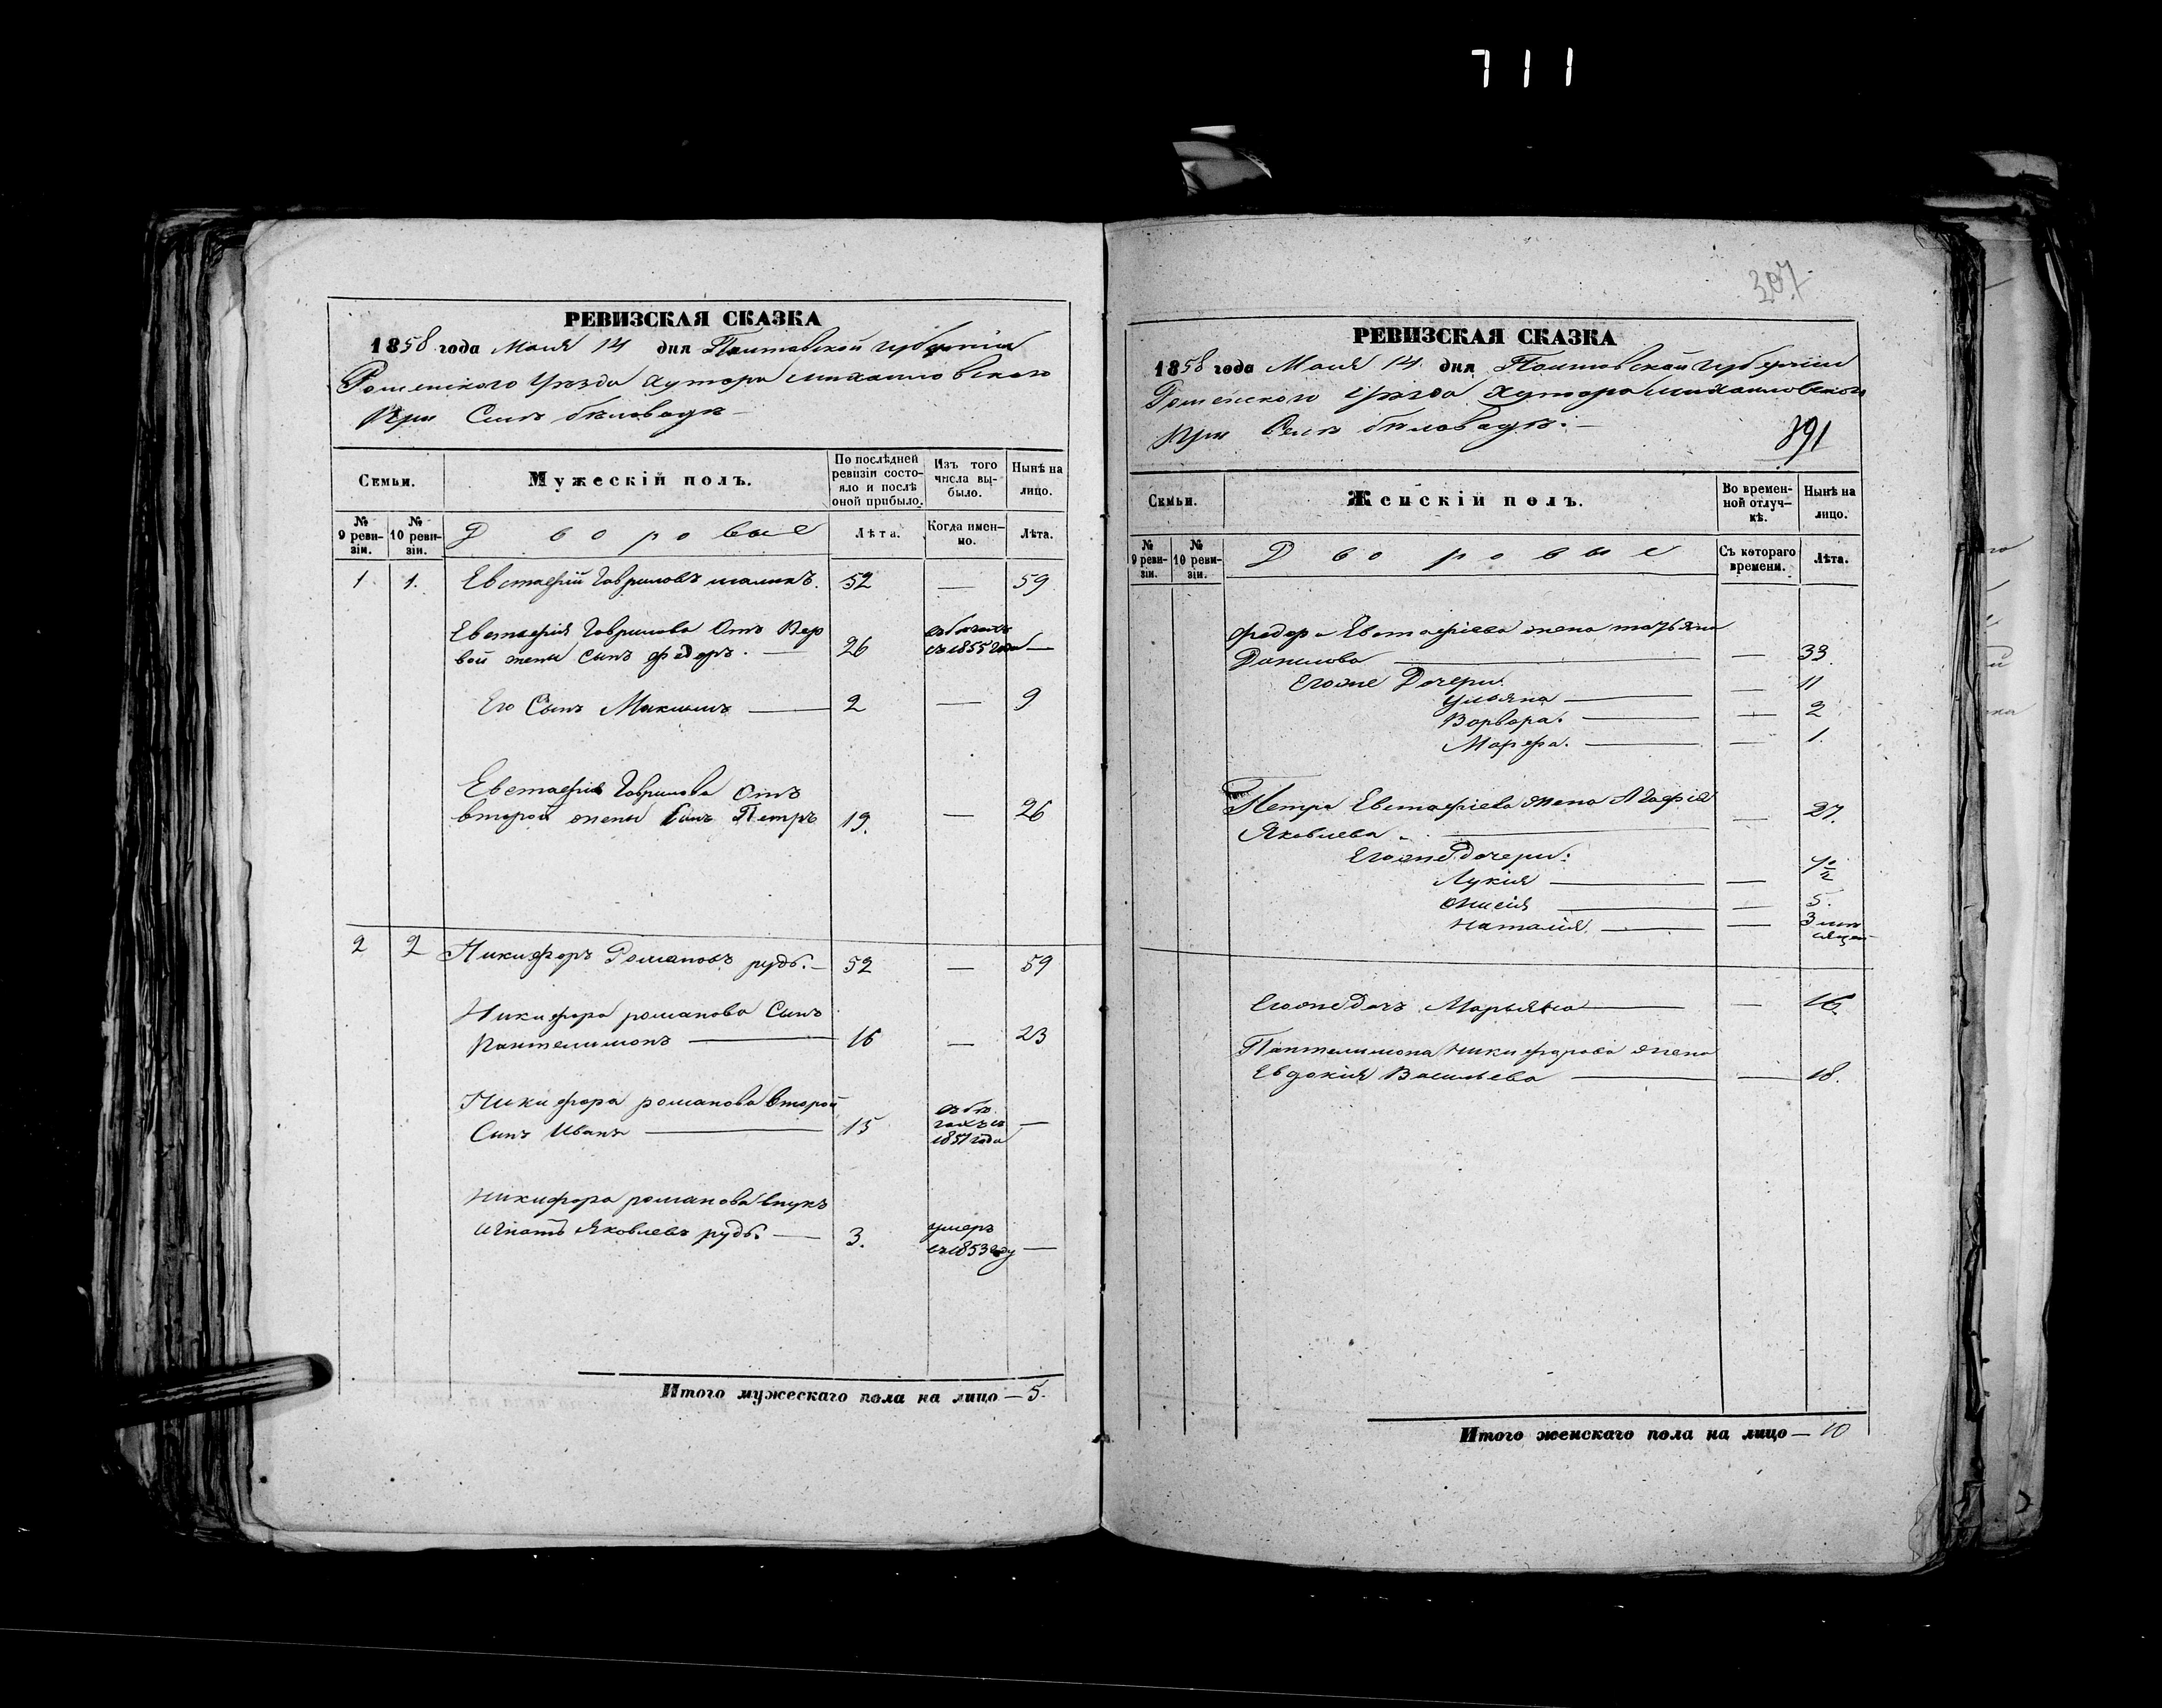 711
РЕВИЗСКАЯ СКАЗКА
1858 года Мая 14 дня Полтавской губерніи
Роменского уѣзда хутора михаиловского
При Селѣ бѣловодѣ
Семьи.
Мужескій полъ.
По послѣдней ревизіи состояло и послѣ оной прибыло.
Изъ того числа выбыло.
Нынѣ на лицо.
№ 9 ревизіи.
№ 10 ревизіи.
Дворовые
Лѣта.
Когда именно.
Лѣта.
1 1. Евстафій Гавриловъ 52 — 59
Евстафія Гаврилова Отъ Пер
вой жены сынъ федоръ. — 26 въ бѣгахъ съ 1855 года —
Его Сынъ Максимъ — 2 — 9
Евстафія Гаврилова Отъ
второй жены Сынъ Петръ 19. — 26
2 2 Никифоръ Романовъ рудь. — 52 — 59
Никифора романова Сынъ
Пантелимонъ — 16 — 23
Никифора романова второй
Сынъ Иванъ — 15 въ бѣгахъ съ 1851 года —
Никифора романова внукъ
Игнатъ Яковлевъ рудь. — 3. умеръ въ 1853 году —
Итого мужескаго пола на лицо — 5.
307
РЕВИЗСКАЯ СКАЗКА
1858 года Мая 14 дня Полтовской губерніи
Роменского уѣзда хутора михаиловского
При Селѣ бѣловодѣ. —
391
Семьи.
Женскій полъ.
Во временной отлучкѣ.
Нынѣ на лицо.
№ 9 ревизіи.
№ 10 ревизіи.
Дворовые
Съ котораго времени.
Лѣта.
федора Евстафіева жена татьяна
Данилова — — 33.
Егоже Дочери: 11
Ульяна — —
Ворвора. — — 2
Марфа. — — 1.
Петра Евстафіева жена Агафія
Яковлева. — — 27.
Егоже дочери:
Лукія — —
Онисія — — 5.
Наталія. — — 3 мѣсяца
Егоже дочь Марьяна — — 16.
Пантелимона Никифорова жена
Евдокія Васильева — — 18.
Итого женскаго пола на лицо — 10